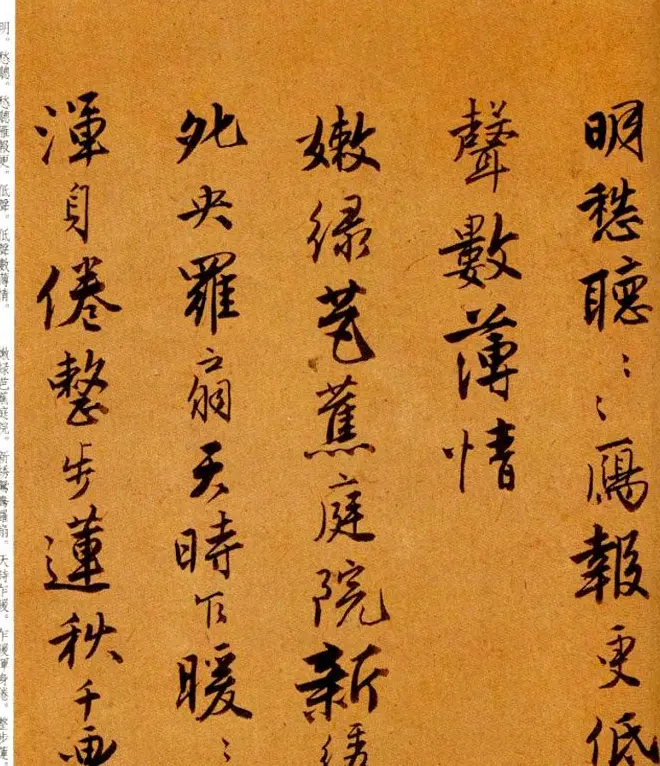 明愁聽〻〻鴈報更低
聲數薄情
嫩緑芭蕉庭院新繡
夗央羅扇天時乍暖〻
渾身倦整步蓮秋千畫
明。愁聽。愁聽雁報更。低聲。低聲數薄情。　嫩綠芭蕉庭院。新綉鴛鴦羅扇。天時乍暖。乍暖渾身倦。整步蓮。